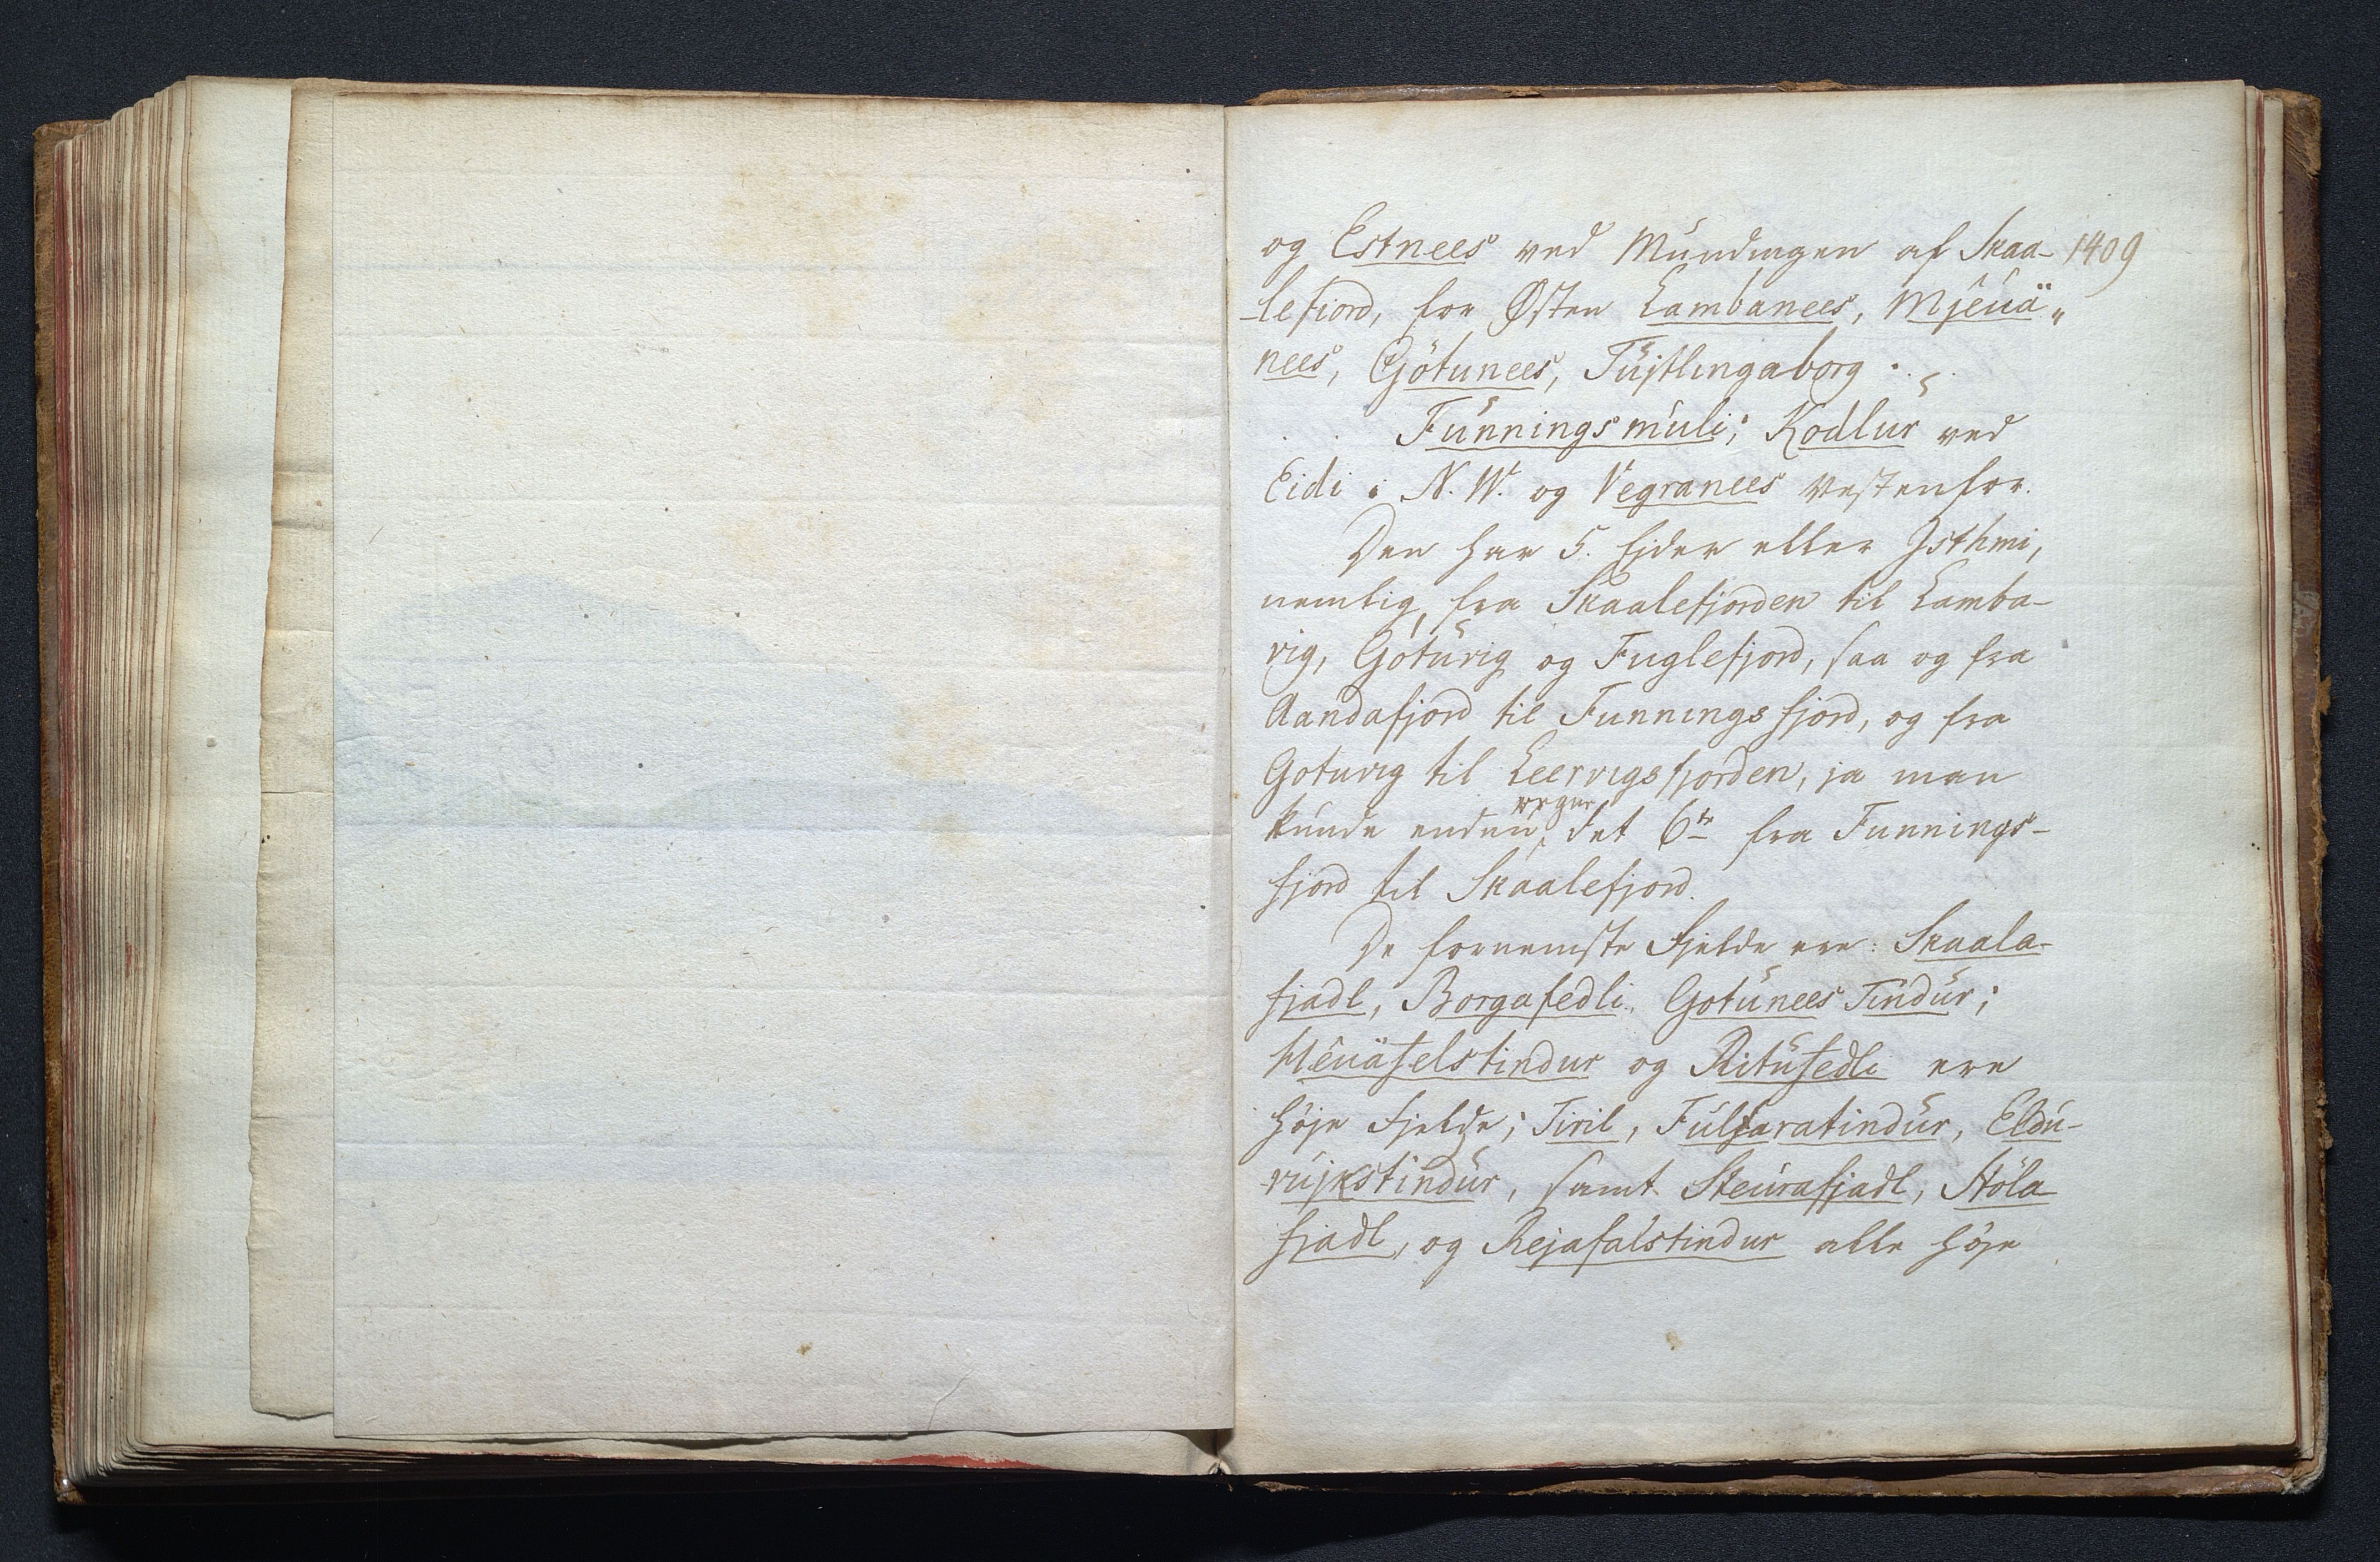 og Estnees ved Mundingen af Skaa- 1409
-lefiord, for Østen Lambanees, Mjêuä„
nees, Gjötunees, Tüjtlingaborg
Funningsmuli; Kodlur ved
Eidi i N. W. og Vegranees Vestenfor.
Den har 5. Ejder eller Isthmi,
nemlig, fra Skaalefjorden til Lamba-
vig, Göturig og Fuglefjord, saa og fra
Aandafjord til Funningsfjord, og fra
Goturig til Leervigsfjorden, ja man
kunde endnu regne det 6te fra Funnings-
fjord til Skaalefjord.
De fornemste Fjelde ere: Skaala-
fjadl, Borgafedli, Gotunees Tindur;
Hêuäfelstindur og Ritufedli ere
høje Fjelde; Tiril, Fulsaratindur, Eldu-
-rujkstindur, samt Skeurafjadl, Stöla
fjadl, og Rejafalstindur alle høje